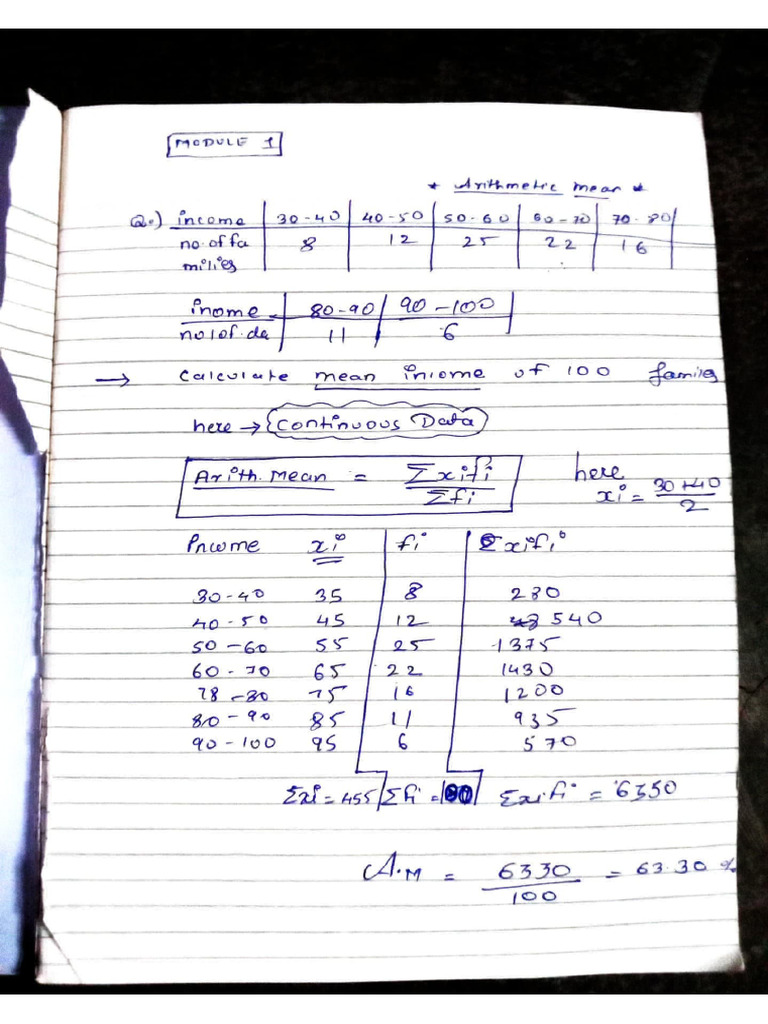 MODULE 1
* Arithmetic mean *
Q.) income 30-40 40-50 50-60 60-70 70-80
no. of fa 8 12 25 22 16
milies
inome 80-90 90-100
no1of.de 11 6
→ Calculate mean iniome of 100 familes
here → Continuous Data
Arith. Mean = Σxifi / Σfi here xi = 30+40 / 2
Income xi fi Σxifi
30-40 35 8 280
40-50 45 12 540
50-60 55 25 1375
60-70 65 22 1430
78-80 75 16 1200
80-90 85 11 935
90-100 95 6 570
Σxi = 455 Σfi = 100 Σxifi = 6350
A.M = 6330 / 100 = 63.30 %